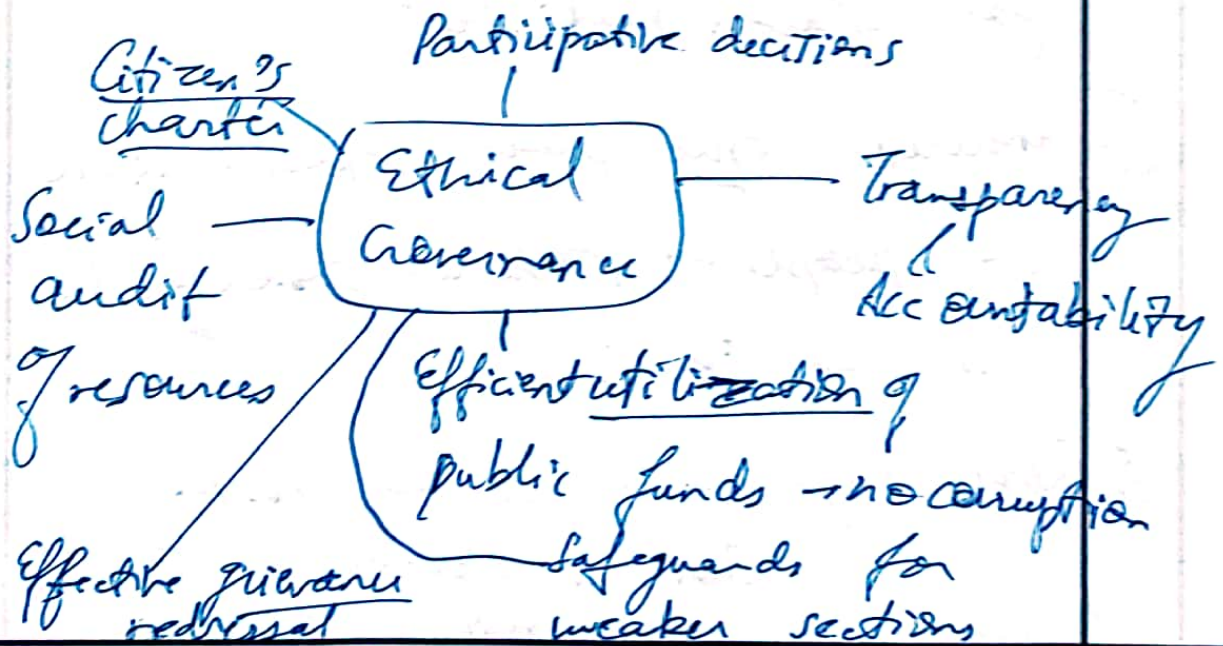 Participative decitions
Citizen's
charter
Ethical
Governance
Transparency
&
Accountability
Social
audit
of resources
Efficient utilization of
public funds → no corruption
Safeguards for
weaker sections
Effective grievance
redressal